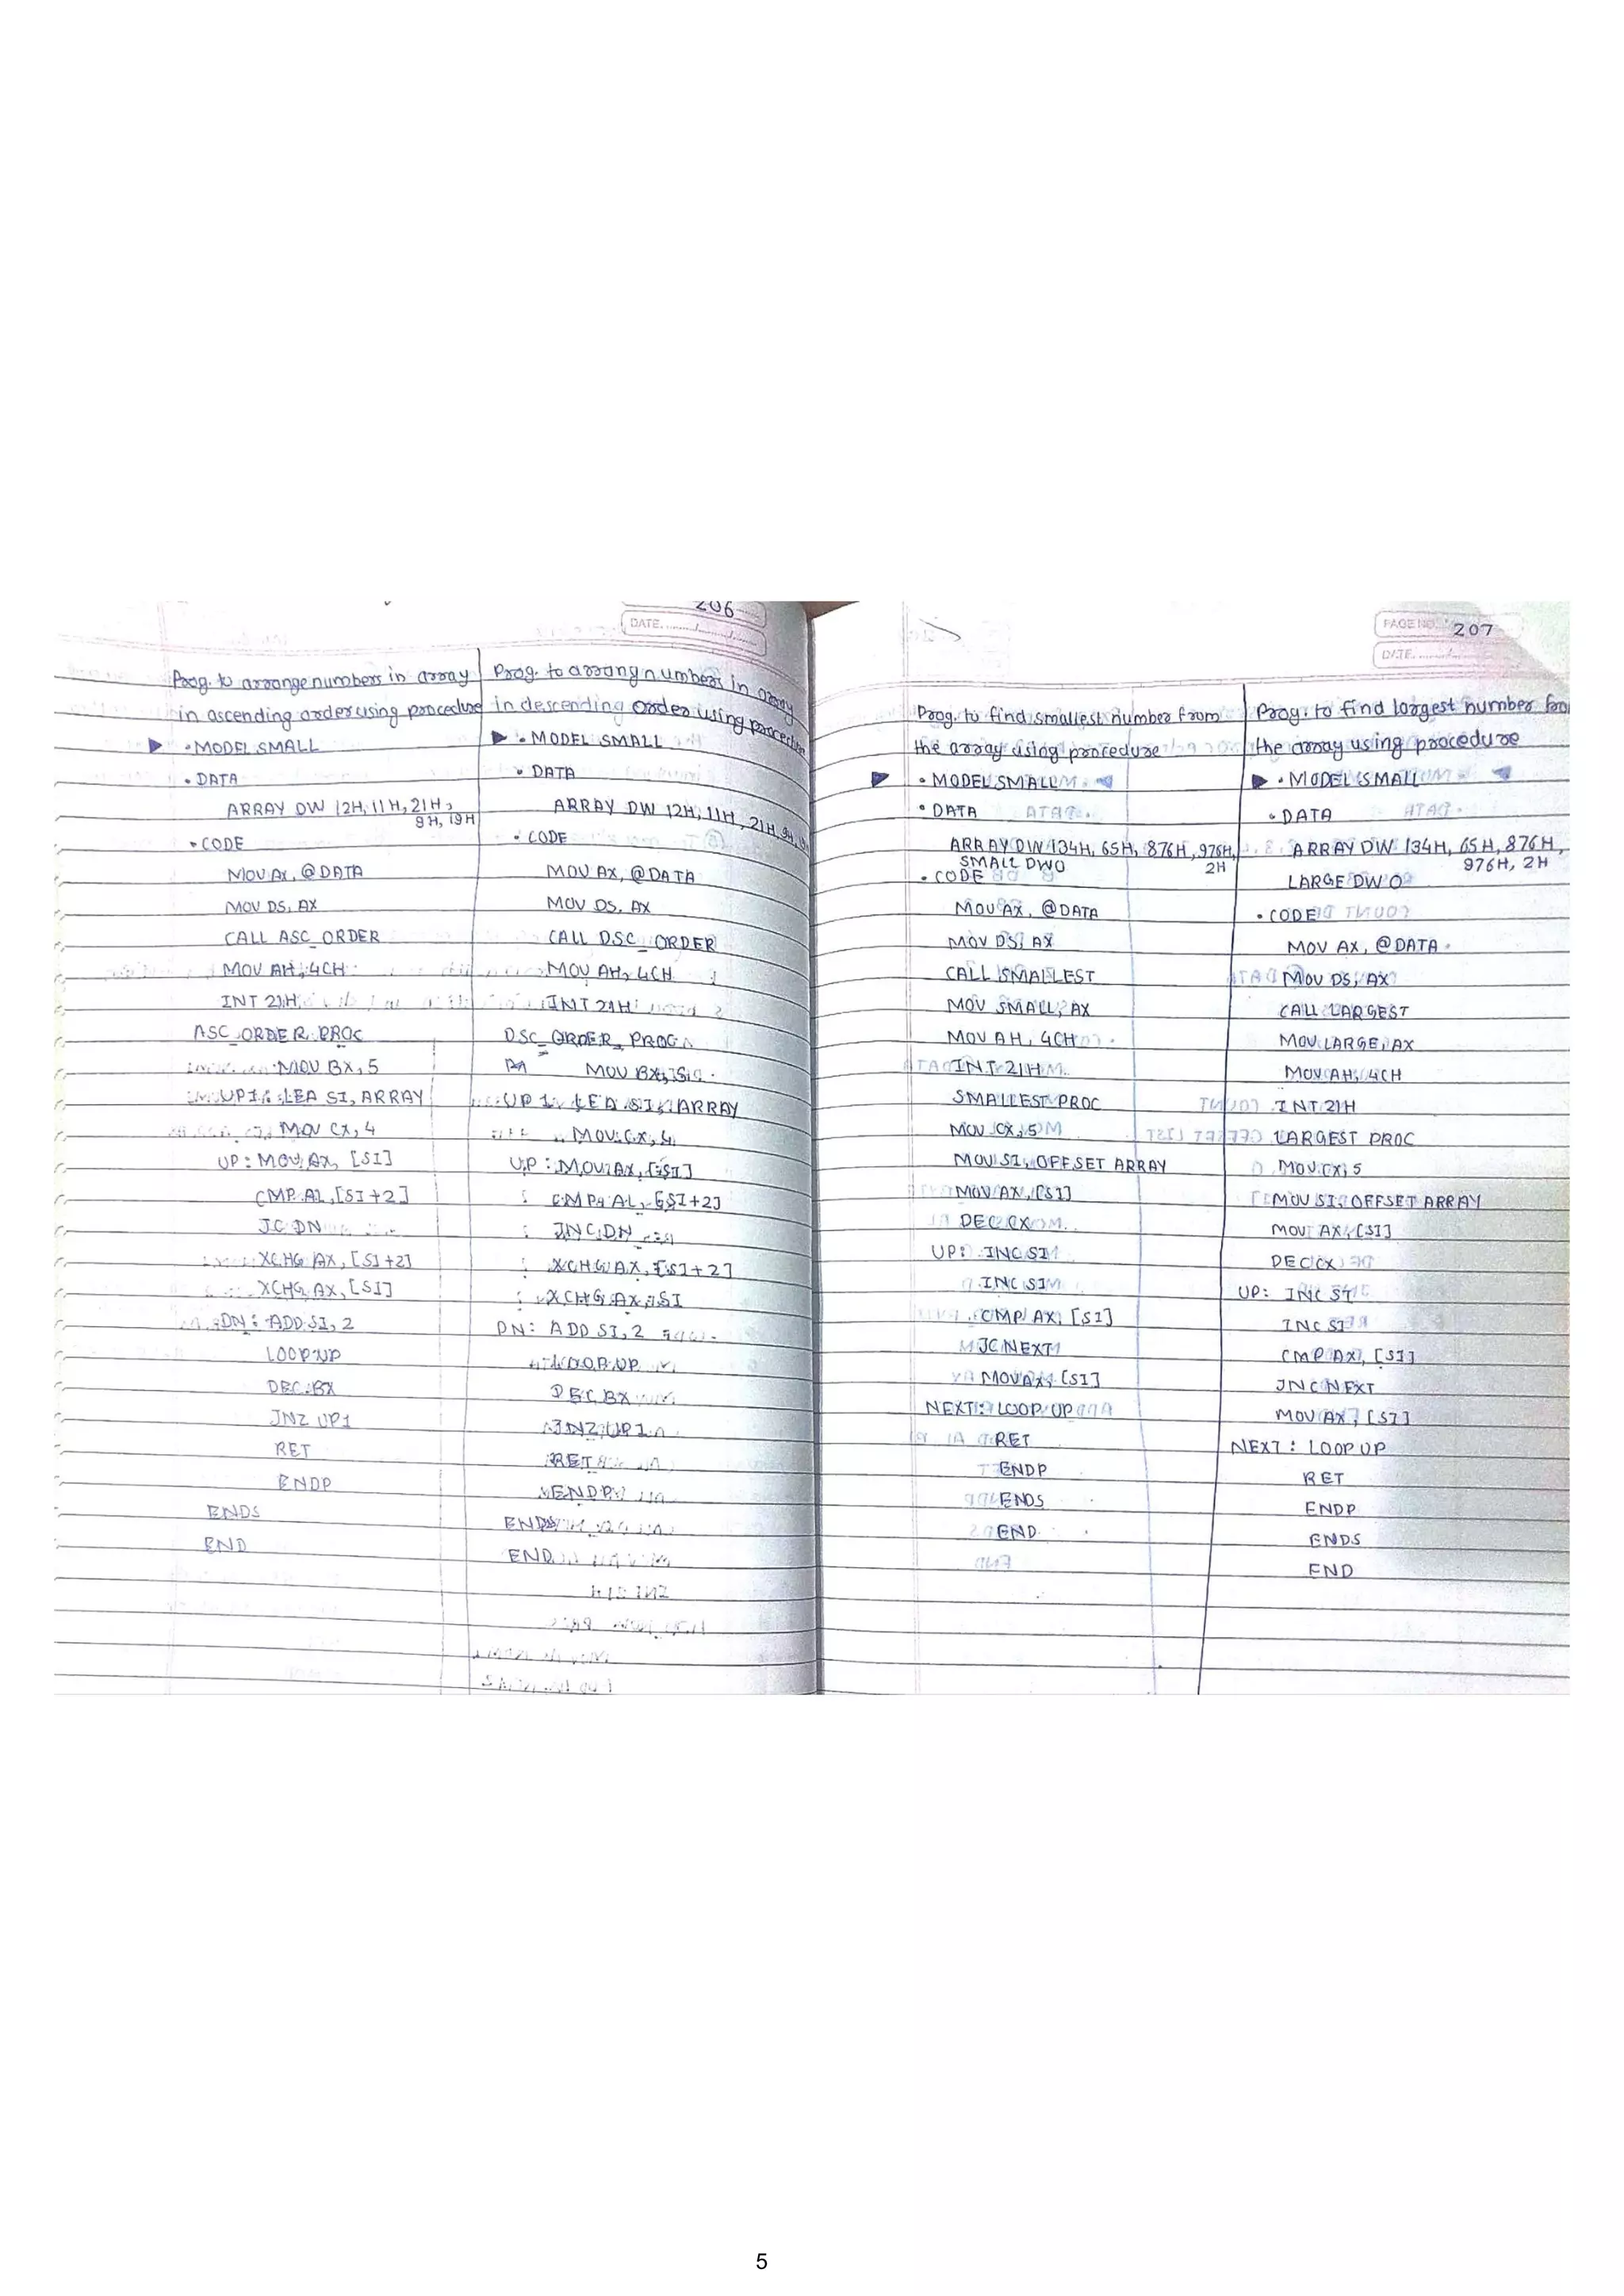 206
DATE
Prog. to arrange numbers in array
in ascending order using procedure
.MODEL SMALL
.DATA
ARRAY DW 12H, 11H, 21H,
9H, 19H
.CODE
MOV AX, @DATA
MOV DS, AX
CALL ASC_ORDER
MOV AH, 4CH
INT 21H
ASC_ORDER PROC
MOV BX, 5
UP1: LEA SI, ARRAY
MOV CX, 4
UP: MOV AX, [SI]
CMP AL, [SI+2]
JC DN
XCHG AX, [SI+2]
XCHG AX, [SI]
DN: ADD SI, 2
LOOP UP
DEC BX
JNZ UP1
RET
ENDP
ENDS
END
Prog. to arrang numbers in array
in descending order using
.MODEL SMALL
.DATA
ARRAY DW 12H, 11H, 21H, 9H,
.CODE
MOV AX, @DATA
MOV DS, AX
CALL DSC_ORDER
MOV AH, 4CH
INT 21H
DSC_ORDER PROC
MOV BX, 5
UP1: LEA SI, ARRAY
MOV CX, 4
UP: MOV AX, [SI]
CMP AL, [SI+2]
JNC DN
XCHG AX, [SI+2]
XCHG AX, SI
DN: ADD SI, 2
LOOP UP
DEC BX
JNZ UP1
RET
ENDP
ENDS
END
PAGE NO. 207
DATE
Prog. to find smallest number from
the array using procedure
.MODEL SMALL
.DATA
ARRAY DW 134H, 65H, 876H, 976H,
2H
SMALL DW 0
.CODE
MOV AX, @DATA
MOV DS, AX
CALL SMALLEST
MOV SMALL, AX
MOV AH, 4CH
INT 21H
SMALLEST PROC
MOV CX, 5
MOV SI, OFFSET ARRAY
MOV AX, [SI]
DEC CX
UP: INC SI
INC SI
CMP AX, [SI]
JC NEXT
MOV AX, [SI]
NEXT: LOOP UP
RET
ENDP
ENDS
END
Prog. to find largest number
the array using procedure
.MODEL SMALL
.DATA
ARRAY DW 134H, 65H, 876H,
976H, 2H
LARGE DW 0
.CODE
MOV AX, @DATA
MOV DS, AX
CALL LARGEST
MOV LARGE, AX
MOV AH, 4CH
INT 21H
LARGEST PROC
MOV CX, 5
MOV SI, OFFSET ARRAY
MOV AX, [SI]
DEC CX
UP: INC SI
INC SI
CMP AX, [SI]
JNC NEXT
MOV AX, [SI]
NEXT: LOOP UP
RET
ENDP
ENDS
END
5